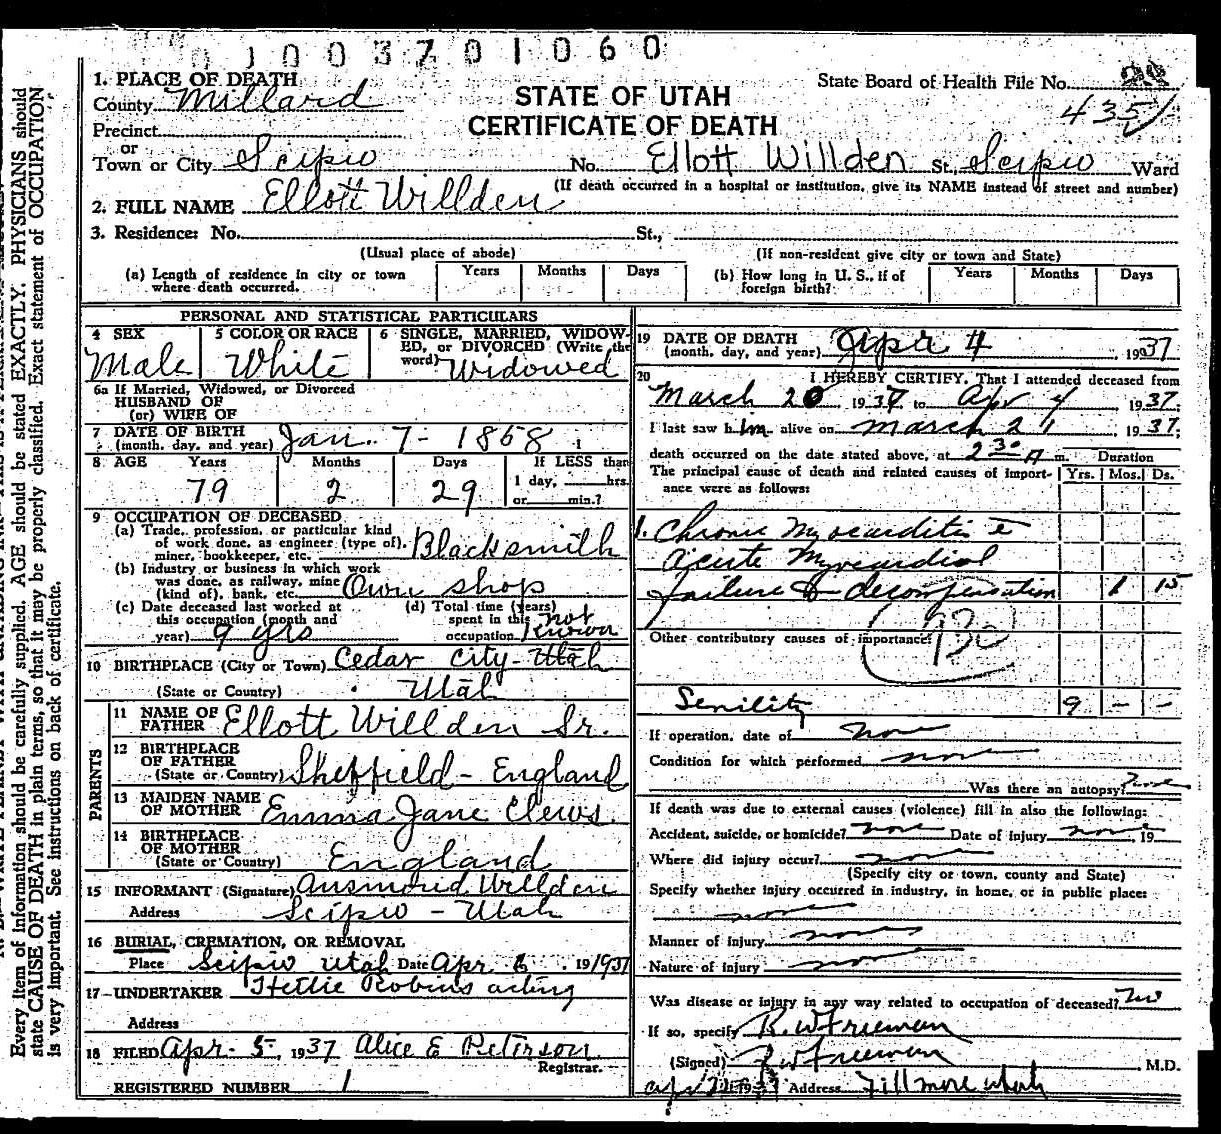 1003701060
1. PLACE OF DEATH
County Millard
State Board of Health File No.
435
STATE OF UTAH
CERTIFICATE OF DEATH
Precinct
or
Town or City Scipio No. Ellott Willden St. Scipio Ward
(If death occurred in a hospital or institution, give its NAME instead of street and number)
2. FULL NAME Ellott Willden
3. Residence: No. St.,
(Usual place of abode) (If non-resident give city or town and State)
(a) Length of residence in city or town where death occurred. Years Months Days
(b) How long in U. S., if of foreign birth? Years Months Days
PERSONAL AND STATISTICAL PARTICULARS
4 SEX Male
5 COLOR OR RACE White
6 SINGLE, MARRIED, WIDOWED, or DIVORCED (Write the word) Widowed
6a If Married, Widowed, or Divorced
HUSBAND OF
(or) WIFE OF
7 DATE OF BIRTH
(month, day, and year) Jan. 7 - 1858
8 AGE Years Months Days If LESS than
79 2 29 1 day, hrs.
or min.?
9 OCCUPATION OF DECEASED
(a) Trade, profession, or particular kind
of work done, as engineer (type of),
miner, bookkeeper, etc. Blacksmith
(b) Industry or business in which work
was done, as railway, mine
(kind of), bank, etc. Own shop
(c) Date deceased last worked at
this occupation (month and
year) 9 yrs
(d) Total time (years)
spent in this
occupation not Known
10 BIRTHPLACE (City or Town) Cedar City - Utah
(State or Country) Utah
PARENTS
11 NAME OF
FATHER Ellott Willden Sr.
12 BIRTHPLACE
OF FATHER
(State or Country) Sheffield - England
13 MAIDEN NAME
OF MOTHER Emma Jane Clews
14 BIRTHPLACE
OF MOTHER
(State or Country) England
15 INFORMANT (Signature) Willden
Address Scipio - Utah
16 BURIAL, CREMATION, OR REMOVAL
Place Scipio Utah Date Apr 6 19 1937
17 UNDERTAKER Hettie Robins acting
Address
18 FILED Apr - 5 -, 1937 Alice E Peterson
Registrar.
REGISTERED NUMBER 1
19 DATE OF DEATH
(month, day, and year) Apr 4, 1937
20 I HEREBY CERTIFY, That I attended deceased from
March 20 1937, to Apr 4 1937.
I last saw him alive on March 21, 1937.
death occurred on the date stated above, at 2 30 A m. Duration
The principal cause of death and related causes of importance were as follows: Yrs. Mos. Ds.
1. Chronic Myocarditis c
acute Myocardial
failure & decompensation 1 15
Other contributory causes of importance:
930
Senility 9 - -
If operation, date of none
Condition for which performed none
Was there an autopsy? none
If death was due to external causes (violence) fill in also the following:
Accident, suicide, or homicide? none Date of injury none, 19
Where did injury occur? none
(Specify city or town, county and State)
Specify whether injury occurred in industry, in home, or in public place:
none
Manner of injury none
Nature of injury none
Was disease or injury in any way related to occupation of deceased? no
If so, specify R. W Freeman
(Signed) R W Freeman, M.D.
Address Fillmore Utah
Every item of information should be carefully supplied. AGE should be stated EXACTLY. PHYSICIANS should
state CAUSE OF DEATH in plain terms, so that it may be properly classified. Exact statement of OCCUPATION
is very important. See instructions on back of certificate.